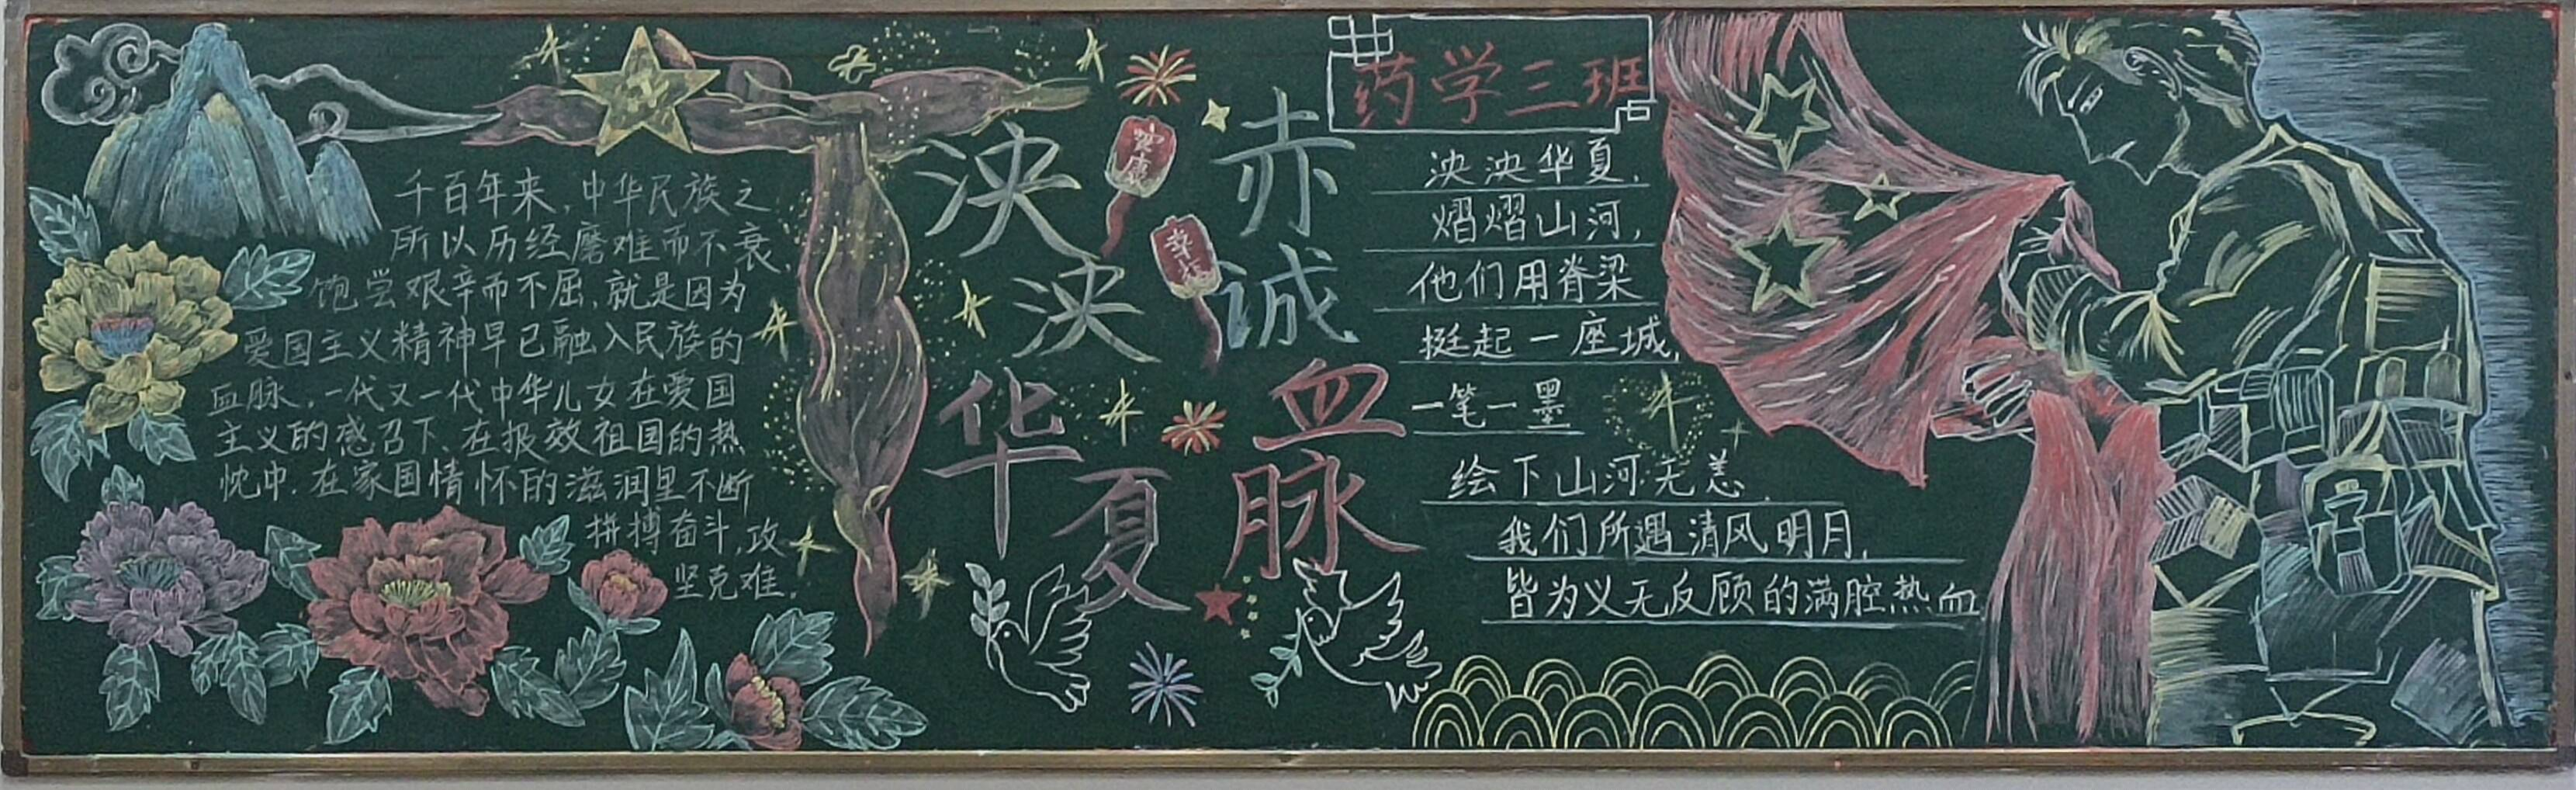 千百年来,中华民族之
所以历经磨难而不衰,
饱尝艰辛而不屈,就是因为
爱国主义精神早已融入民族的
血脉,一代又一代中华儿女在爱国
主义的感召下、在报效祖国的热
忱中、在家国情怀的滋润里不断
拼搏奋斗,攻
坚克难。
泱泱华夏
赤诚血脉
健康
幸福
药学三班
泱泱华夏,
熠熠山河,
他们用脊梁
挺起一座城,
一笔一墨
绘下山河无恙,
我们所遇清风明月,
皆为义无反顾的满腔热血